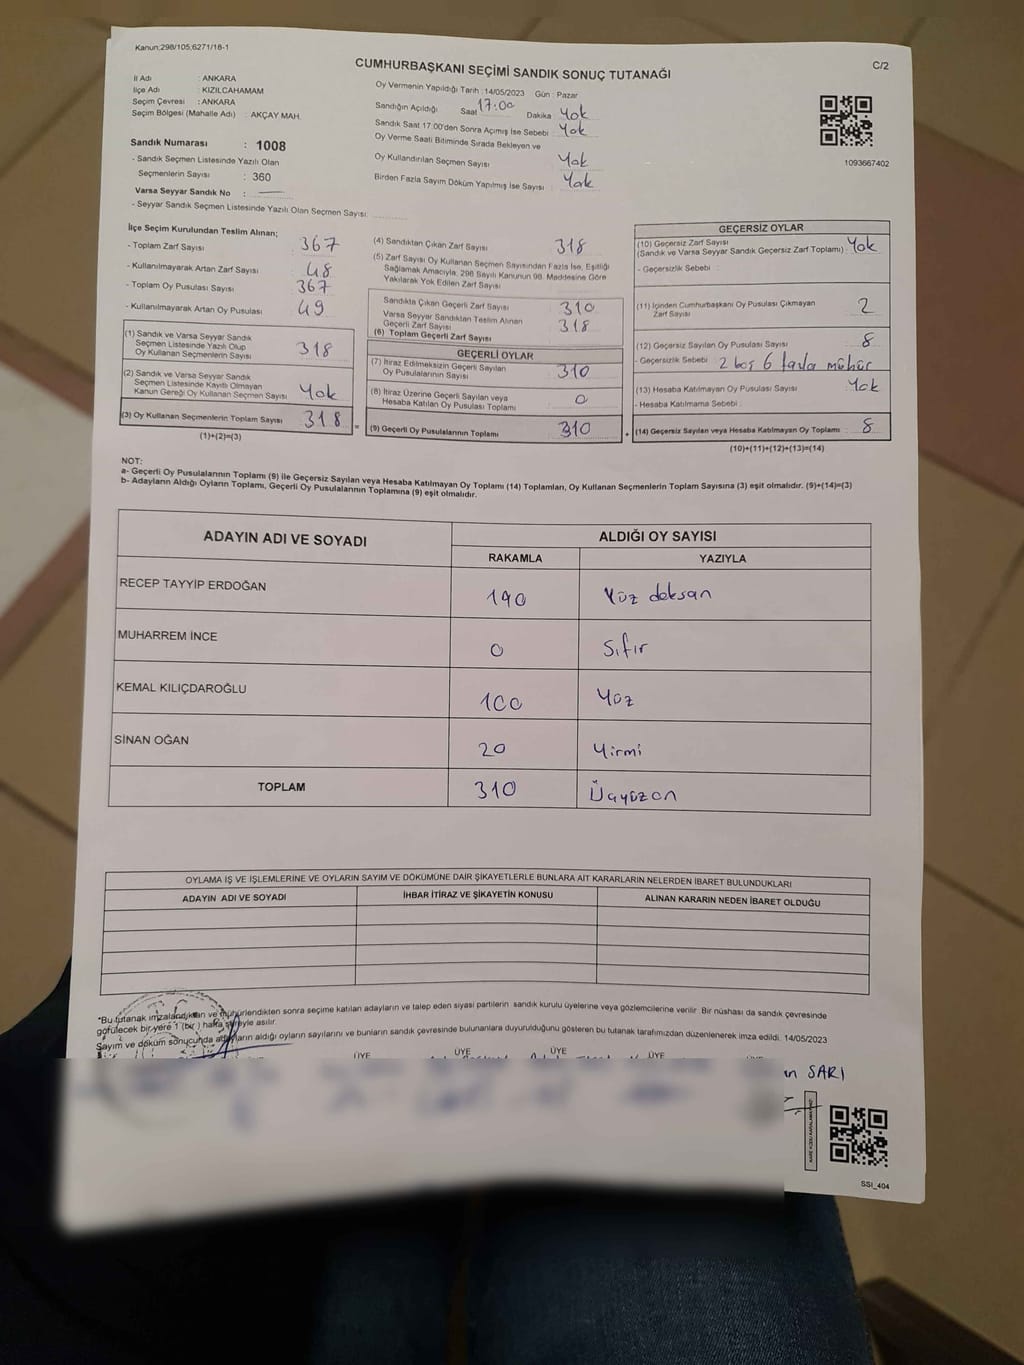 Kanun:298/105,6271/18-1
C/2
CUMHURBAŞKANI SEÇİMİ SANDIK SONUÇ TUTANAĞI
İl Adı : ANKARA
İlçe Adı : KIZILCAHAMAM
Seçim Çevresi : ANKARA
Seçim Bölgesi (Mahalle Adı) : AKÇAY MAH.
Sandık Numarası : 1008
- Sandık Seçmen Listesinde Yazılı Olan
Seçmenlerin Sayısı : 360
Varsa Seyyar Sandık No :
- Seyyar Sandık Seçmen Listesinde Yazılı Olan Seçmen Sayısı:
Oy Vermenin Yapıldığı Tarih : 14/05/2023 Gün : Pazar
Sandığın Açıldığı Saat 17:00 Dakika : Yok
Sandık Saat 17:00'den Sonra Açımış İse Sebebi : Yok
Oy Verme Saati Bitiminde Sırada Bekleyen ve
Oy Kullandırılan Seçmen Sayısı : Yok
Birden Fazla Sayım Döküm Yapılmış İse Sayısı : Yok
1093667402
İlçe Seçim Kurulundan Teslim Alınan;
- Toplam Zarf Sayısı : 367
- Kullanılmayarak Artan Zarf Sayısı : 48
- Toplam Oy Pusulası Sayısı : 367
- Kullanılmayarak Artan Oy Pusulası : 49
(1) Sandık ve Varsa Seyyar Sandık
Seçmen Listesinde Yazılı Olup
Oy Kullanan Seçmenlerin Sayısı : 318
(2) Sandık ve Varsa Seyyar Sandık
Seçmen Listesinde Kayıtlı Olmayan
Kanun Gereği Oy Kullanan Seçmen Sayısı : Yok
(3) Oy Kullanan Seçmenlerin Toplam Sayısı : 318 =
(1)+(2)=(3)
(4) Sandıktan Çıkan Zarf Sayısı : 318
(5) Zarf Sayısı Oy Kullanan Seçmen Sayısından Fazla İse, Eşitliği
Sağlamak Amacıyla, 298 Sayılı Kanunun 98. Maddesine Göre
Yakılarak Yok Edilen Zarf Sayısı :
Sandıkta Çıkan Geçerli Zarf Sayısı : 310
Varsa Seyyar Sandıktan Teslim Alınan
Geçerli Zarf Sayısı : 318
(6) Toplam Geçerli Zarf Sayısı
GEÇERLİ OYLAR
(7) İtiraz Edilmeksizin Geçerli Sayılan
Oy Pusulalarının Sayısı : 310
(8) İtiraz Üzerine Geçerli Sayılan veya
Hesaba Katılan Oy Pusulası Toplamı : 0
(9) Geçerli Oy Pusulalarının Toplamı : 310 +
GEÇERSİZ OYLAR
(10) Geçersiz Zarf Sayısı
(Sandık ve Varsa Seyyar Sandık Geçersiz Zarf Toplamı) : Yok
- Geçersizlik Sebebi :
(11) İçinden Cumhurbaşkanı Oy Pusulası Çıkmayan
Zarf Sayısı : 2
(12) Geçersiz Sayılan Oy Pusulası Sayısı : 8
- Geçersizlik Sebebi : 2 boş 6 fazla mühür
(13) Hesaba Katılmayan Oy Pusulası Sayısı : Yok
- Hesaba Katılmama Sebebi :
(14) Geçersiz Sayılan veya Hesaba Katılmayan Oy Toplamı : 8
(10)+(11)+(12)+(13)=(14)
NOT:
a- Geçerli Oy Pusulalarının Toplamı (9) ile Geçersiz Sayılan veya Hesaba Katılmayan Oy Toplamı (14) Toplamları, Oy Kullanan Seçmenlerin Toplam Sayısına (3) eşit olmalıdır. (9)+(14)=(3)
b- Adayların Aldığı Oyların Toplamı, Geçerli Oy Pusulalarının Toplamına (9) eşit olmalıdır.
ADAYIN ADI VE SOYADI ALDIĞI OY SAYISI
RAKAMLA YAZIYLA
RECEP TAYYİP ERDOĞAN 190 Yüz doksan
MUHARREM İNCE 0 Sıfır
KEMAL KILIÇDAROĞLU 100 Yüz
SİNAN OĞAN 20 Yirmi
TOPLAM 310 Üçyüzon
OYLAMA İŞ VE İŞLEMLERİNE VE OYLARIN SAYIM VE DÖKÜMÜNE DAİR ŞİKAYETLERLE BUNLARA AİT KARARLARIN NELERDEN İBARET BULUNDUKLARI
ADAYIN ADI VE SOYADI İHBAR İTİRAZ VE ŞİKAYETİN KONUSU ALINAN KARARIN NEDEN İBARET OLDUĞU
*Bu tutanak imzalandıktan ve mühürlendikten sonra seçime katılan adayların ve talep eden siyasi partilerin sandık kurulu üyelerine veya gözlemcilerine verilir. Bir nüshası da sandık çevresinde
görülecek bir yere 1 (bir) hafta süreyle asılır.
Sayım ve döküm sonucunda adayların aldığı oyların sayılarını ve bunların sandık çevresinde bulunanlara duyurulduğunu gösteren bu tutanak tarafımızdan düzenlenerek imza edildi. 14/05/2023
ÜYE ÜYE ÜYE ÜYE
SARI
SSI_404